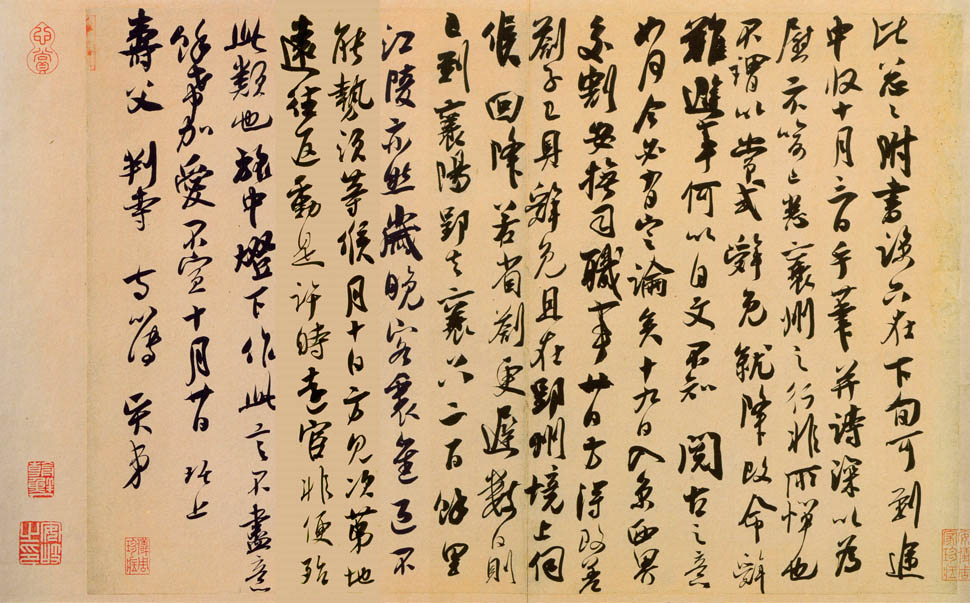 比忽々附書諒只在下旬可到途
中收十月三日手筆并詩深以為
慰示箋已悉襄州之行非所憚也
不謂以嘗試辭免就降改命辭
難避事何以自文不知 閱古之意
如何今必有定論矣十九日入京西界
交割安撫司職事廿日方得改差
劄子已具辭免且在郢州境上伺
候回降若省劄更遲數日則
已到襄陽郢去襄只二百餘里
江陵亦然歲晚客裏 不
能 勢須等候月十日方見次第地
遠往返動是許時遠宦非便殆
此類也旅中燈下作此言不盡意
餘希加愛不宣十月廿日 琚上
壽父 判寺 賢弟